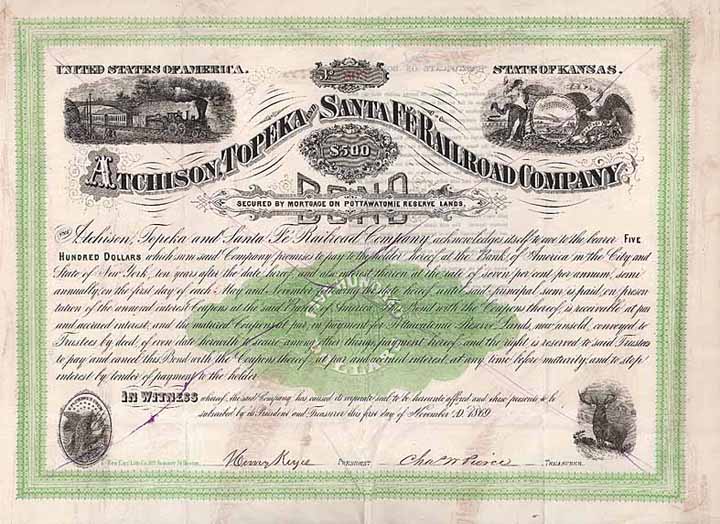 UNITED STATES OF AMERICA.
STATE OF KANSAS.
ATCHISON, TOPEKA AND SANTA FÉ RAILROAD COMPANY
$500
BOND
SECURED BY MORTGAGE ON POTTAWATOMIE RESERVE LANDS.
THE Atchison, Topeka and Santa Fe Railroad Company acknowledges itself to owe to the bearer FIVE
HUNDRED DOLLARS which sum said Company promises to pay to the holder hereof at the Bank of America in the City and
State of New York, ten years after the date hereof, and also interest thereon at the rate of seven per cent per annum, semi
annually, on the first day of each May and November ensuing the date hereof until said principal sum is paid, on presen-
tation of the annexed interest Coupons at the said Bank of America. This Bond with the Coupons thereof, is receivable at par
and accrued interest, and the matured Coupons at par, in payment for Pottawatomie Reserve Lands, now unsold, conveyed to
Trustees by deed, of even date herewith to secure among other things, payment hereof, and the right is reserved to said Trustees
to pay and cancel this Bond with the Coupons thereof at par and accrued interest, at any time before maturity and to stop
interest by tender of payment to the holder
FIVE HUNDRED
DOLLARS
IN WITNESS whereof, the said Company has caused its corporate seal to be hereunto affixed and these presents to be
subscribed by its President and Treasurer this first day of November A.D. 1869
Henry Keyes PRESIDENT Chas W Pierce TREASURER.